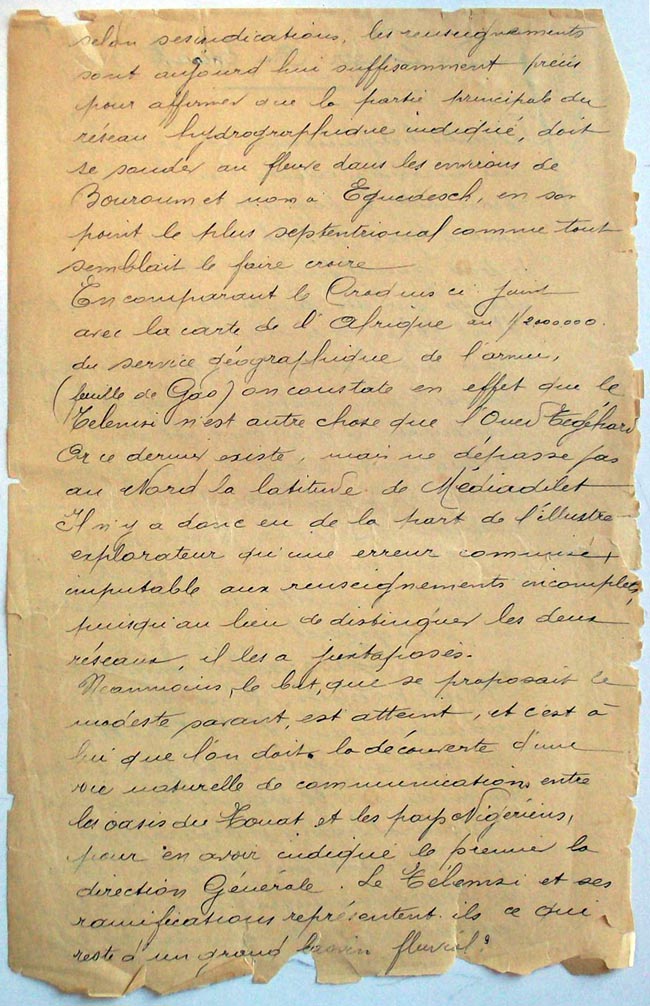 selon ses indications, les renseignements
sont aujourd'hui suffisamment précis
pour affirmer que la partie principale du
réseau hydrographique indiqué, doit
se souder au fleuve dans les environs de
Bouroum et non à Eguedesch, en son
point le plus septentrional comme tout
semblait le faire croire
En comparant le Croquis ci joint
avec la carte de l'Afrique au 1/2000000.
du service géographique de l'armée,
(feuille de Gao) on constate en effet que le
Telemsi n'est autre chose que l'Oued
Or ce dernier existe, mais ne dépasse pas
au Nord la latitude de Médiadilet
Il n'y a donc eu de la part de l'illustre
explorateur qu'une erreur commise,
imputable aux renseignements incomplets,
puisqu'au lieu de distinguer les deux
réseaux, il les a juxtaposés.
Néanmoins, le but, que se proposait le
modeste savant, est atteint, et c'est à
lui que l'on doit la découverte d'une
voie naturelle de communication entre
les oasis du Touat et les pays Nigériens,
pour en avoir indiqué le premier la
direction Générale. Le Télemsi et ses
ramifications représentent ils ce qui
reste d'un grand bassin fluvial?